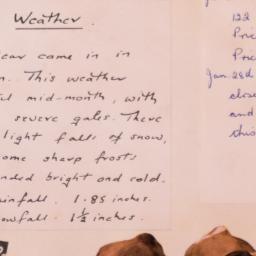 Weather.
ear came in in
This weather
mid-month, with
severe gales. There
light falls of snow,
ome sharp frosts
nded bright and cold.
infall. 1.85 inches.
owfall. 1½ inches.
122
Pri
Pri
Jan. 28th
close
and
this